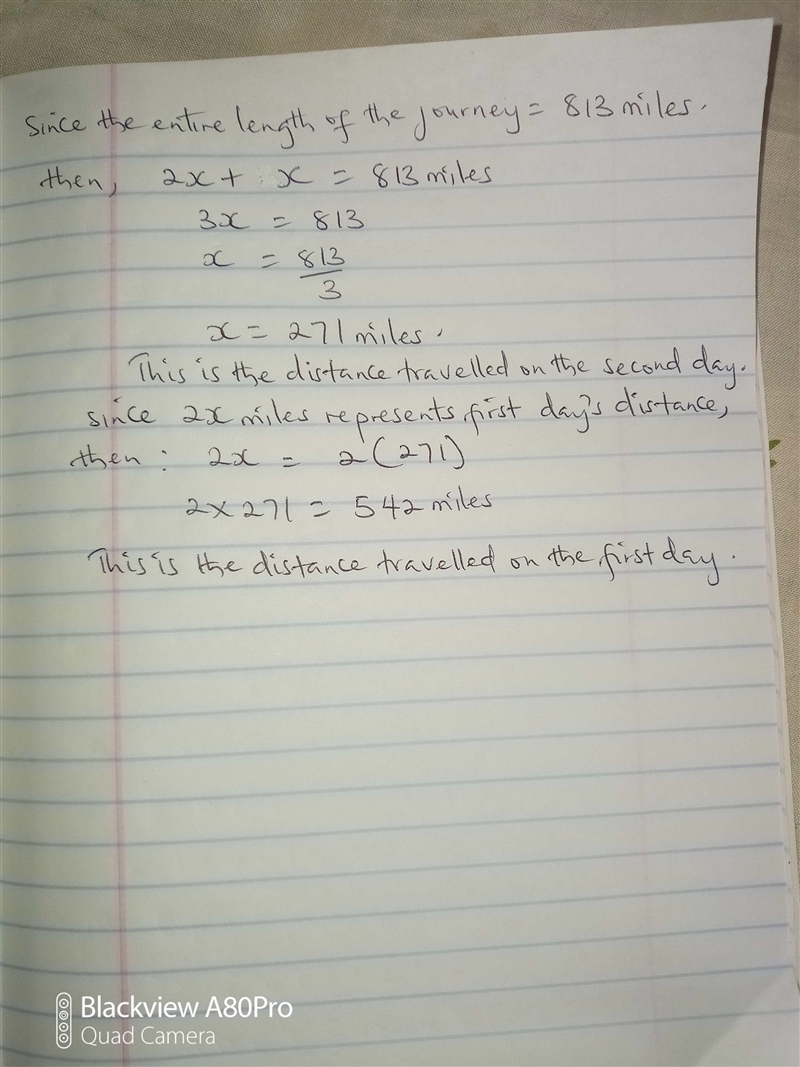 Since the entire length of the journey = 813 miles.
then, 2x + x = 813 miles
3x = 813
x = 813/3
x = 271 miles.
This is the distance travelled on the second day.
since 2x miles represents first day's distance,
then: 2x = 2(271)
2 x 271 = 542 miles
This is the distance travelled on the first day.
Blackview A80Pro
Quad Camera